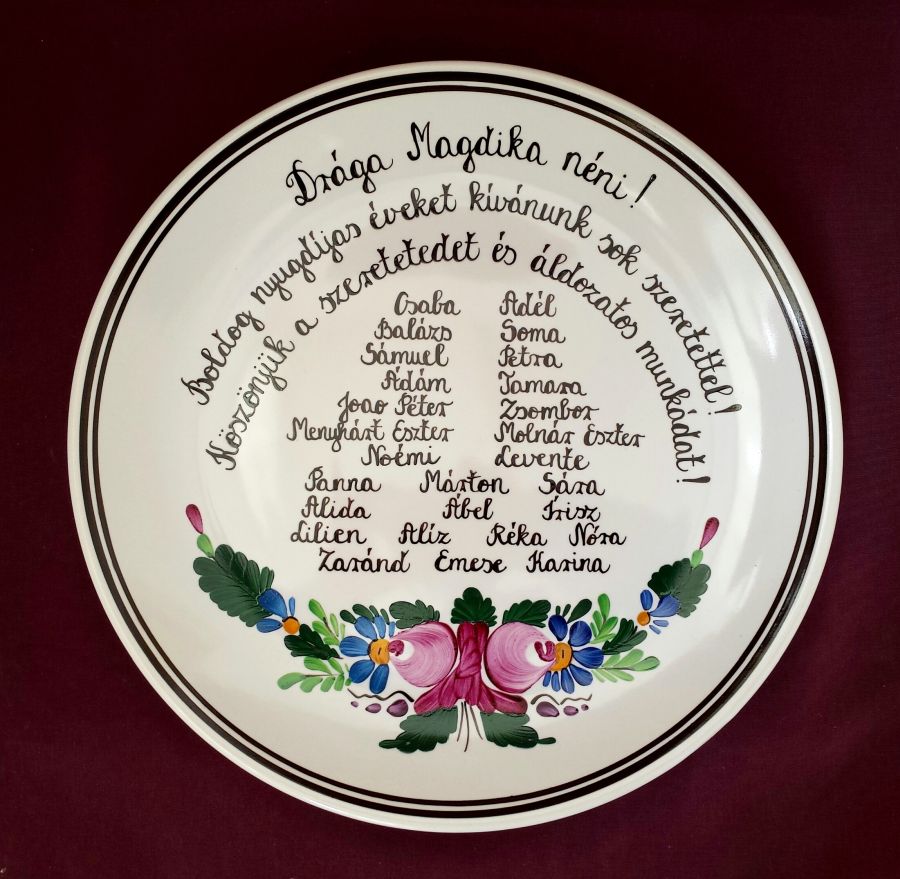 Drága Magdika néni!
Boldog nyugdíjas éveket kívánunk sok szeretettel!
Köszönjük a szeretetedet és áldozatos munkádat!
Csaba Adél
Balázs Soma
Sámuel Petra
Ádám Tamara
Joao Péter Zsombor
Menyhárt Eszter Molnár Eszter
Noémi Levente
Panna Márton Sára
Alida Ábel Írisz
Lilien Alíz Réka Nóra
Zaránd Emese Karina